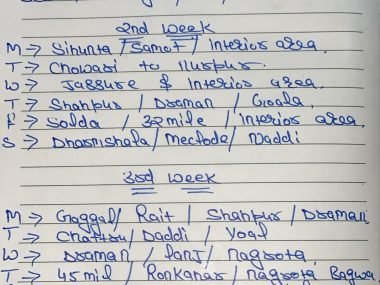 2nd Week
M → Sihunta / Samot / Interior area.
T → Chowari to Nurpur.
W → Jassure & Interior area.
T → Shahpur / Draman / Goala.
F → Solda / 32 mile / Interior area
S → Dharmshala / Mecloda / Naddi
3rd Week
M → Gaggal / Rait / Shahpur / Draman
T → Chattru / Daddi / Yoal
W → Draman / Panj / nagrota
T → 45 mil / Ronkahar / nagrota Bagwa